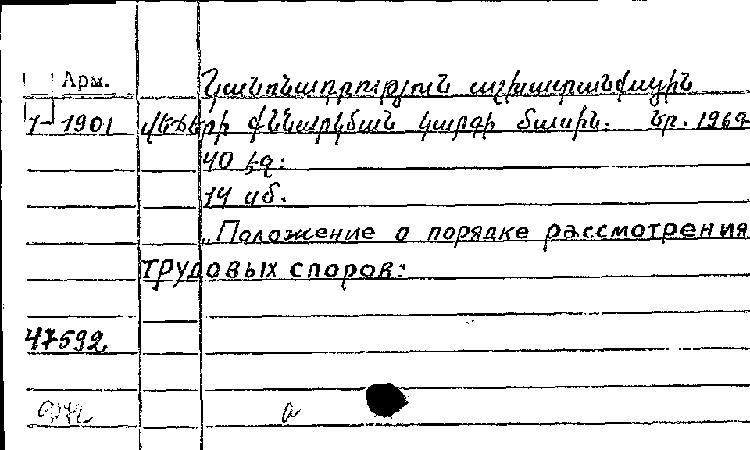 Арм. Կանոնադրություն աշխատանքային
7-1901 վեճերի քննարկման կարգի մասին. Եր. 1967
40 էջ:
14 սմ.
"Положение о порядке рассмотрения
трудовых споров:
47592